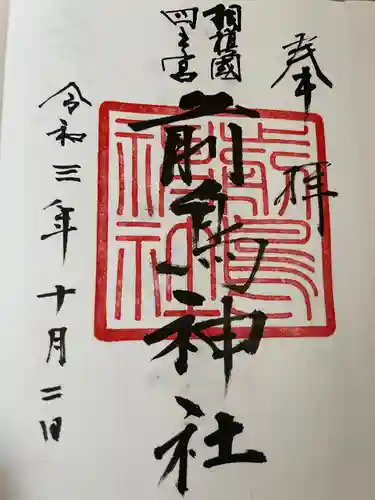 奉拝
相模國
四之宮
前鳥神社
令和三年十月二日
前鳥神社